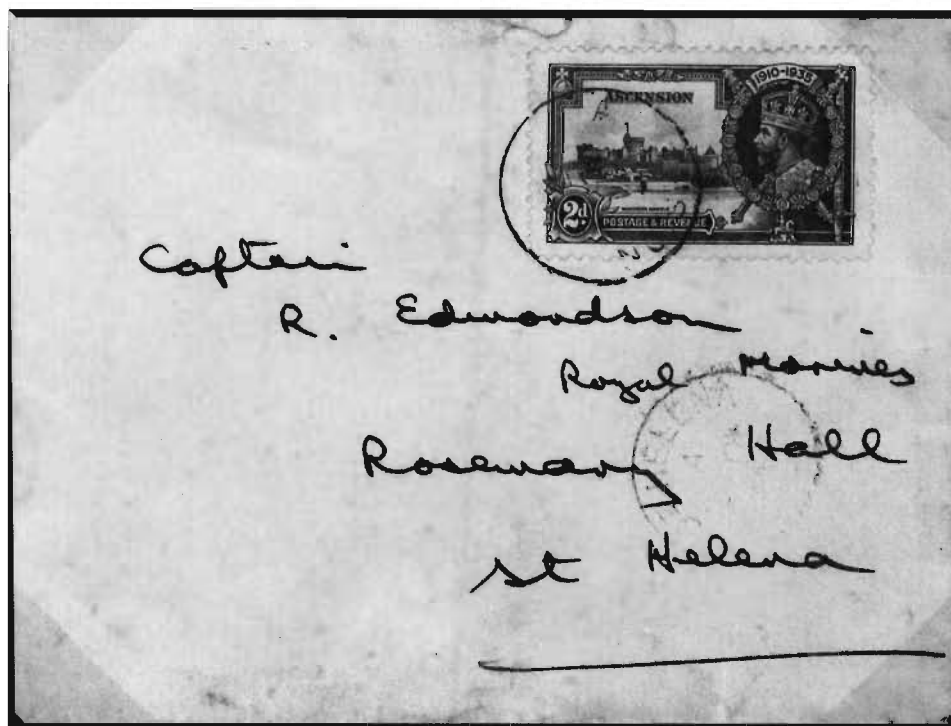 1910-1935
ASCENSION
2d
POSTAGE & REVENUE
Captain
R. Edmondson
Royal Marines
Rosemary Hall
St Helena